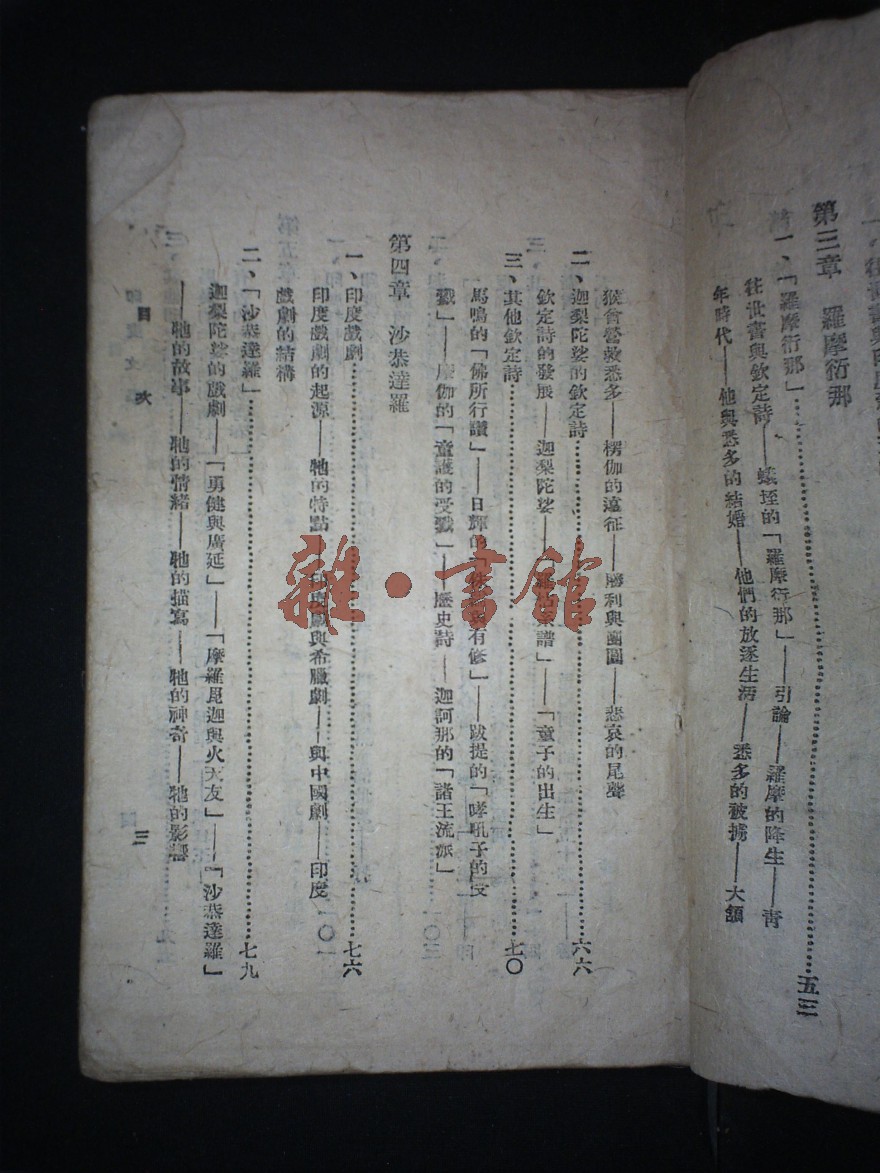 第三章　羅摩衍那
一、「羅摩衍那」……五三
往世書與欽定詩——蟻垤的「羅摩衍那」——引論——羅摩的降生——青
年時代——他與悉多的結婚——他們的放逐生活——悉多的被擄——大頷
猴會營救悉多——楞伽的遠征——勝利與團圓——悲哀的尾聲
二、迦梨陀娑的欽定詩……六六
欽定詩的發展——迦梨陀娑——「童子的出生」
三、其他欽定詩……七〇
馬鳴的「佛所行讚」——日輝的「有修」——跋提的「哮吼子的受
戮」——摩伽的「童護的受戮」——歷史詩——迦訶那的「諸王流派」
第四章　沙恭達羅
一、印度戲劇……七六
印度戲劇的起源——牠的特點——印度戲與希臘劇——與中國劇——印度
戲劇的結構
二、「沙恭達羅」……七九
迦梨陀娑的戲劇——「勇健與廣延」——「摩羅毘迦與火天友」——「沙恭達羅」
——牠的故事——牠的情緒——牠的描寫——牠的神奇——牠的影響
目次
三
雜·書館